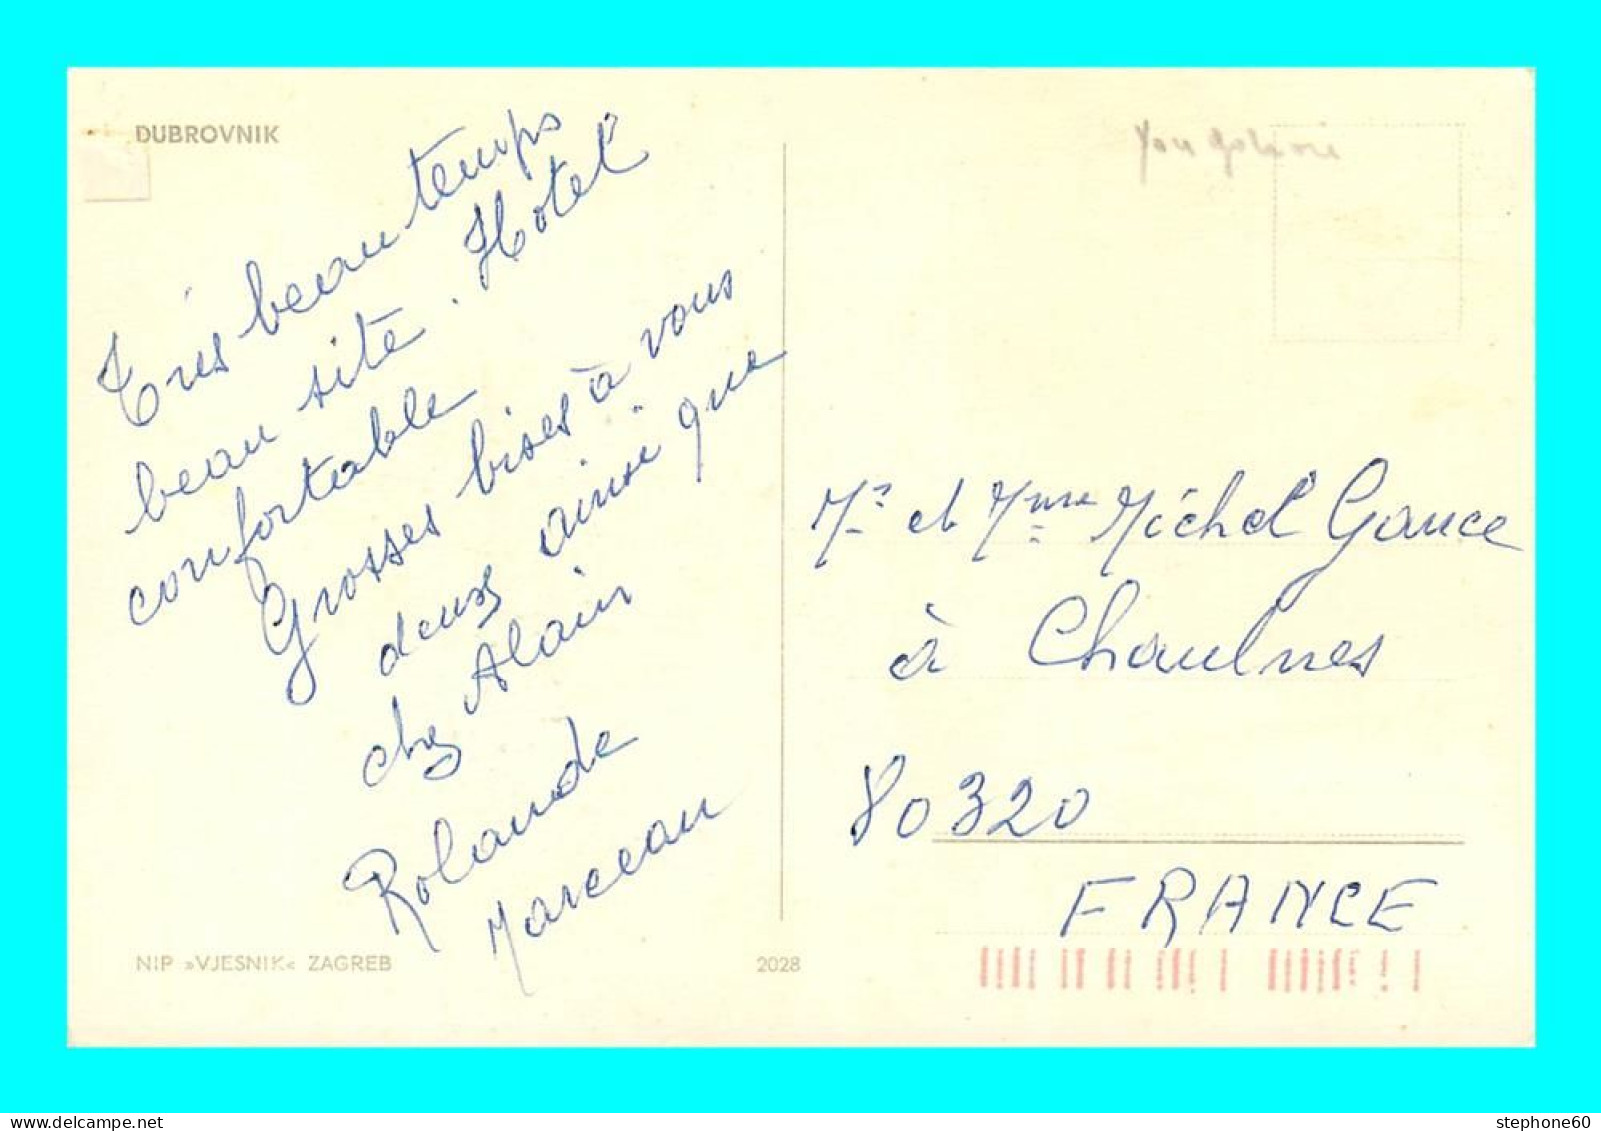 DUBROVNIK
Très beau temps
beau site. Hotel
confortable
Grosses bises à vous
deux ainsi que
chez Alain
Rolande
Marceau
NIP »VJESNIK« ZAGREB
2028
Yougoslavie
Mr et Mme Michel Gance
à Chaulnes
80320
FRANCE
stephone60